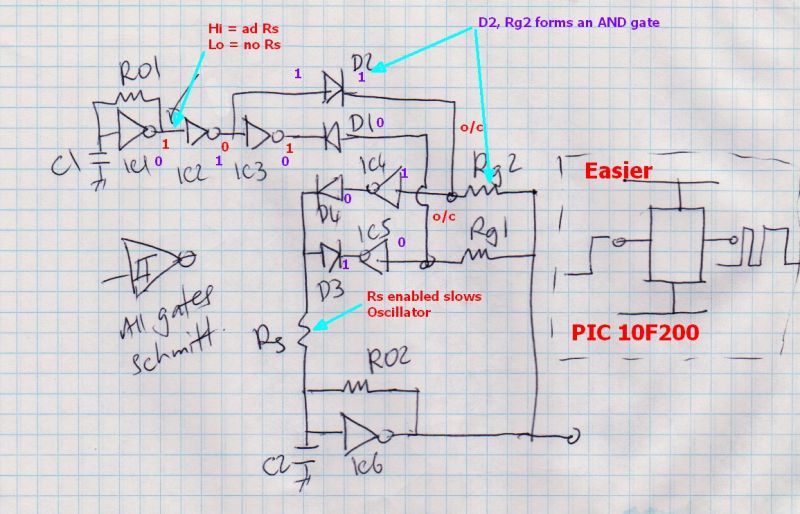 D2, Rg2 forms an AND gate
Hi = ad Rs
Lo = no Rs
RO1
D2
1
1
D1
0
o/c
C1
IC1
1
0
IC2
0
1
IC3
1
0
IC4
1
Rg2
Easier
D4
0
o/c
IC5
0
Rg1
D3
1
All gates
schmitt.
Rs enabled slows
Oscillator
Rs
PIC 10F200
RO2
C2
IC6